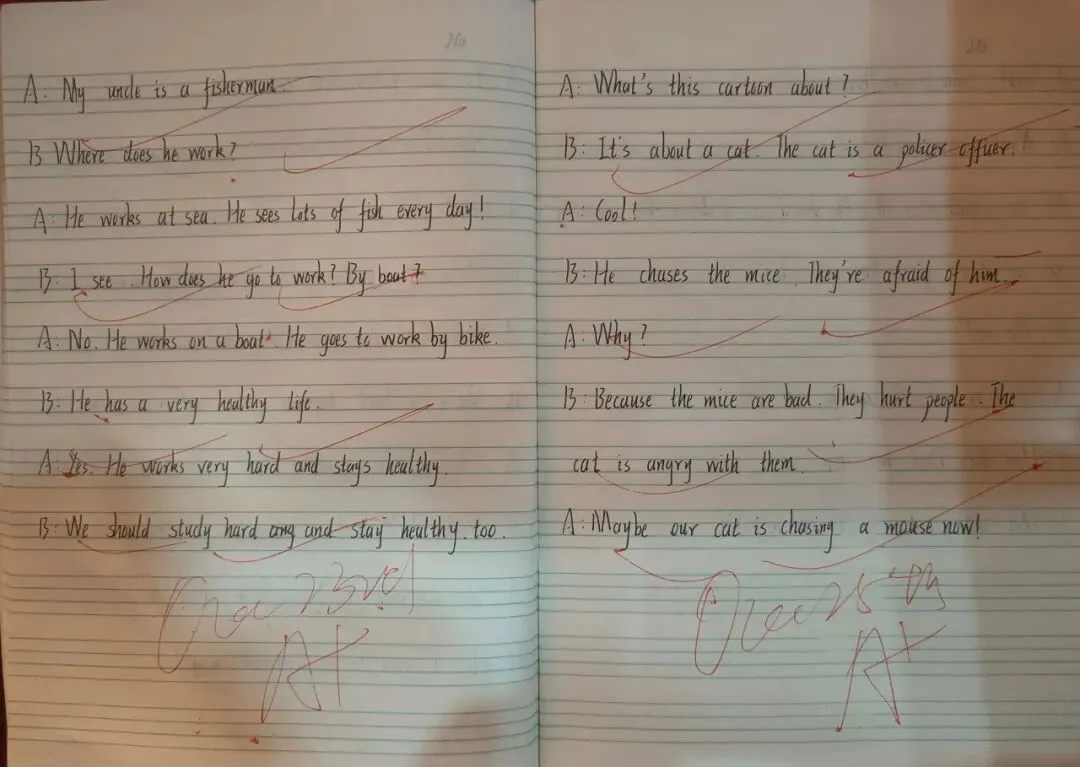 A: My uncle is a fisherman.
B Where does he work?
A: He works at sea. He sees lots of fish every day!
B: I see. How does he go to work? By boat?
A: No. He works on a boat. He goes to work by bike.
B: He has a very healthy life.
A: Yes. He works very hard and stays healthy.
B: We should study hard and stay healthy. too.
A+
A: What's this cartoon about?
B: It's about a cat. The cat is a policer offuer.
A: Cool!
B: He chases the mice. They're afraid of him.
A: Why?
B: Because the mice are bad. They hurt people. The
cat is angry with them.
A: Maybe our cat is chasing a mouse now!
A+